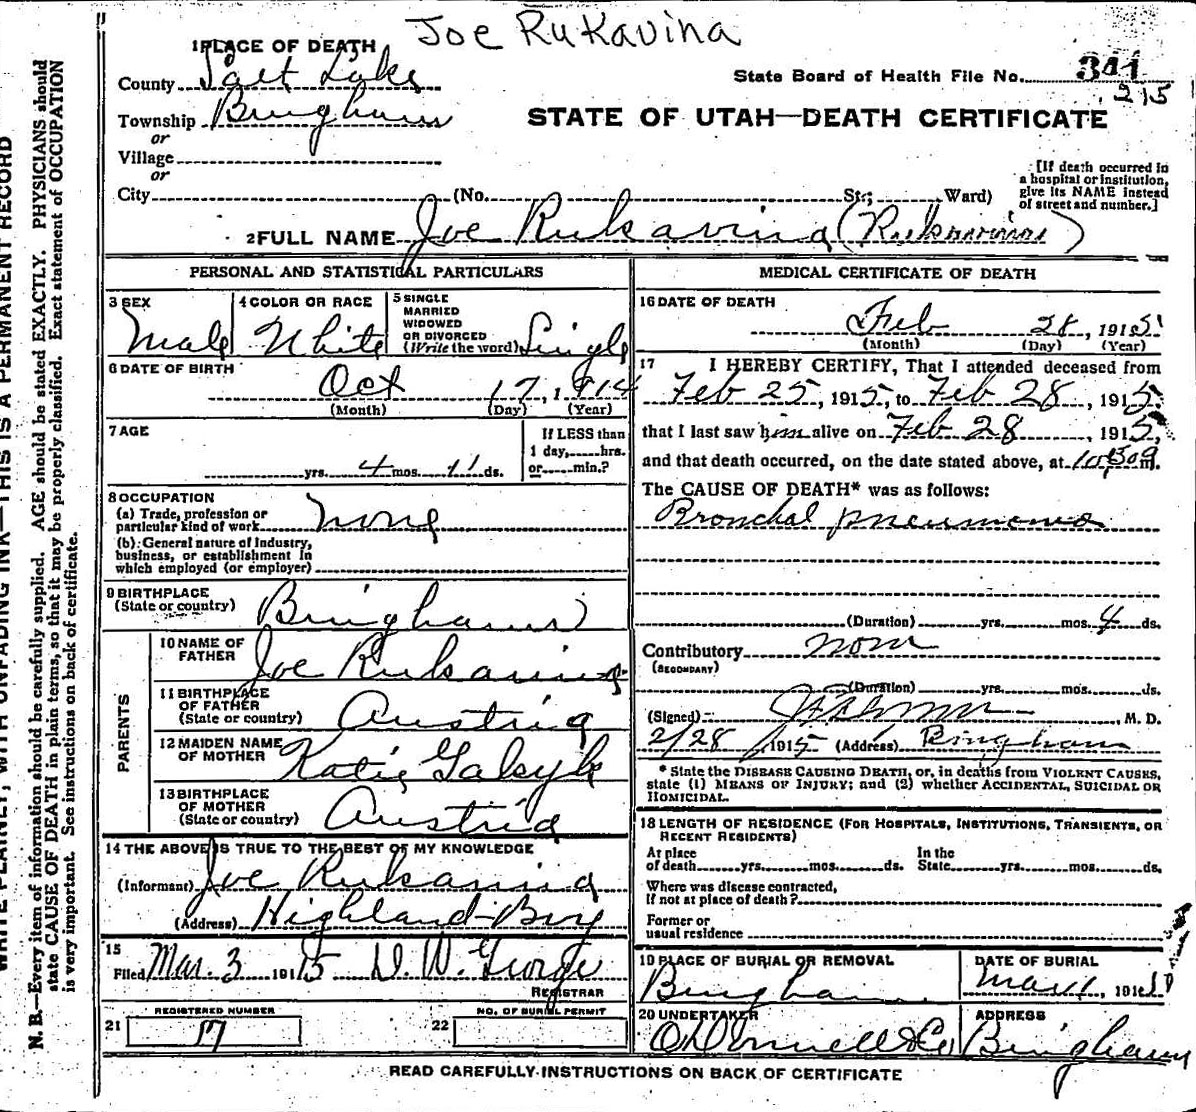 Joe Rukavina
1 PLACE OF DEATH
County Salt Lake
State Board of Health File No. 341
215
Township Bingham
or
STATE OF UTAH—DEATH CERTIFICATE
Village
or
City (No. St.; Ward)
[If death occurred in a hospital or institution, give its NAME instead of street and number.]
2 FULL NAME Joe Rukavina (Rukavina)
PERSONAL AND STATISTICAL PARTICULARS
3 SEX Male
4 COLOR OR RACE White
5 SINGLE
MARRIED
WIDOWED
OR DIVORCED
(Write the word) Single
6 DATE OF BIRTH
Oct 17, 1914
(Month) (Day) (Year)
7 AGE
yrs. 4 mos. 11 ds.
If LESS than
1 day, hrs.
or min.?
8 OCCUPATION
(a) Trade, profession or
particular kind of work none
(b) General nature of industry,
business, or establishment in
which employed (or employer)
9 BIRTHPLACE
(State or country) Bingham
PARENTS
10 NAME OF
FATHER Joe Rukavina
11 BIRTHPLACE
OF FATHER
(State or country) Austria
12 MAIDEN NAME
OF MOTHER Katie
13 BIRTHPLACE
OF MOTHER
(State or country) Austria
14 THE ABOVE IS TRUE TO THE BEST OF MY KNOWLEDGE
(Informant) Joe Rukavina
(Address) Highland Boy
15
Filed Mar. 3 1915 D. W. George
REGISTRAR
REGISTERED NUMBER
21 17
NO. OF BURIAL PERMIT
22
MEDICAL CERTIFICATE OF DEATH
16 DATE OF DEATH
Feb 28, 1915
(Month) (Day) (Year)
17 I HEREBY CERTIFY, That I attended deceased from
Feb 25, 1915, to Feb 28, 1915,
that I last saw him alive on Feb 28, 1915,
and that death occurred, on the date stated above, at m.
The CAUSE OF DEATH* was as follows:
Bronchal pneumonia
(Duration) yrs. mos. 4 ds.
Contributory none
(SECONDARY)
(Duration) yrs. mos. ds.
(Signed) , M. D.
2/28, 1915 (Address) Bingham
* State the DISEASE CAUSING DEATH, or, in deaths from VIOLENT CAUSES,
state (1) MEANS OF INJURY; and (2) whether ACCIDENTAL, SUICIDAL OR
HOMICIDAL.
18 LENGTH OF RESIDENCE (FOR HOSPITALS, INSTITUTIONS, TRANSIENTS, OR
RECENT RESIDENTS)
At place
of death yrs. mos. ds.
In the
State yrs. mos. ds.
Where was disease contracted,
if not at place of death?
Former or
usual residence
19 PLACE OF BURIAL OR REMOVAL
Bingham
DATE OF BURIAL
Mar 1, 1915
20 UNDERTAKER
O'Donnell & Co
ADDRESS
Bingham
READ CAREFULLY INSTRUCTIONS ON BACK OF CERTIFICATE
WRITE PLAINLY, WITH UNFADING INK—THIS IS A PERMANENT RECORD
N. B.—Every item of information should be carefully supplied. AGE should be stated EXACTLY. PHYSICIANS should
state CAUSE OF DEATH in plain terms, so that it may be properly classified. Exact statement of OCCUPATION
is very important. See instructions on back of certificate.